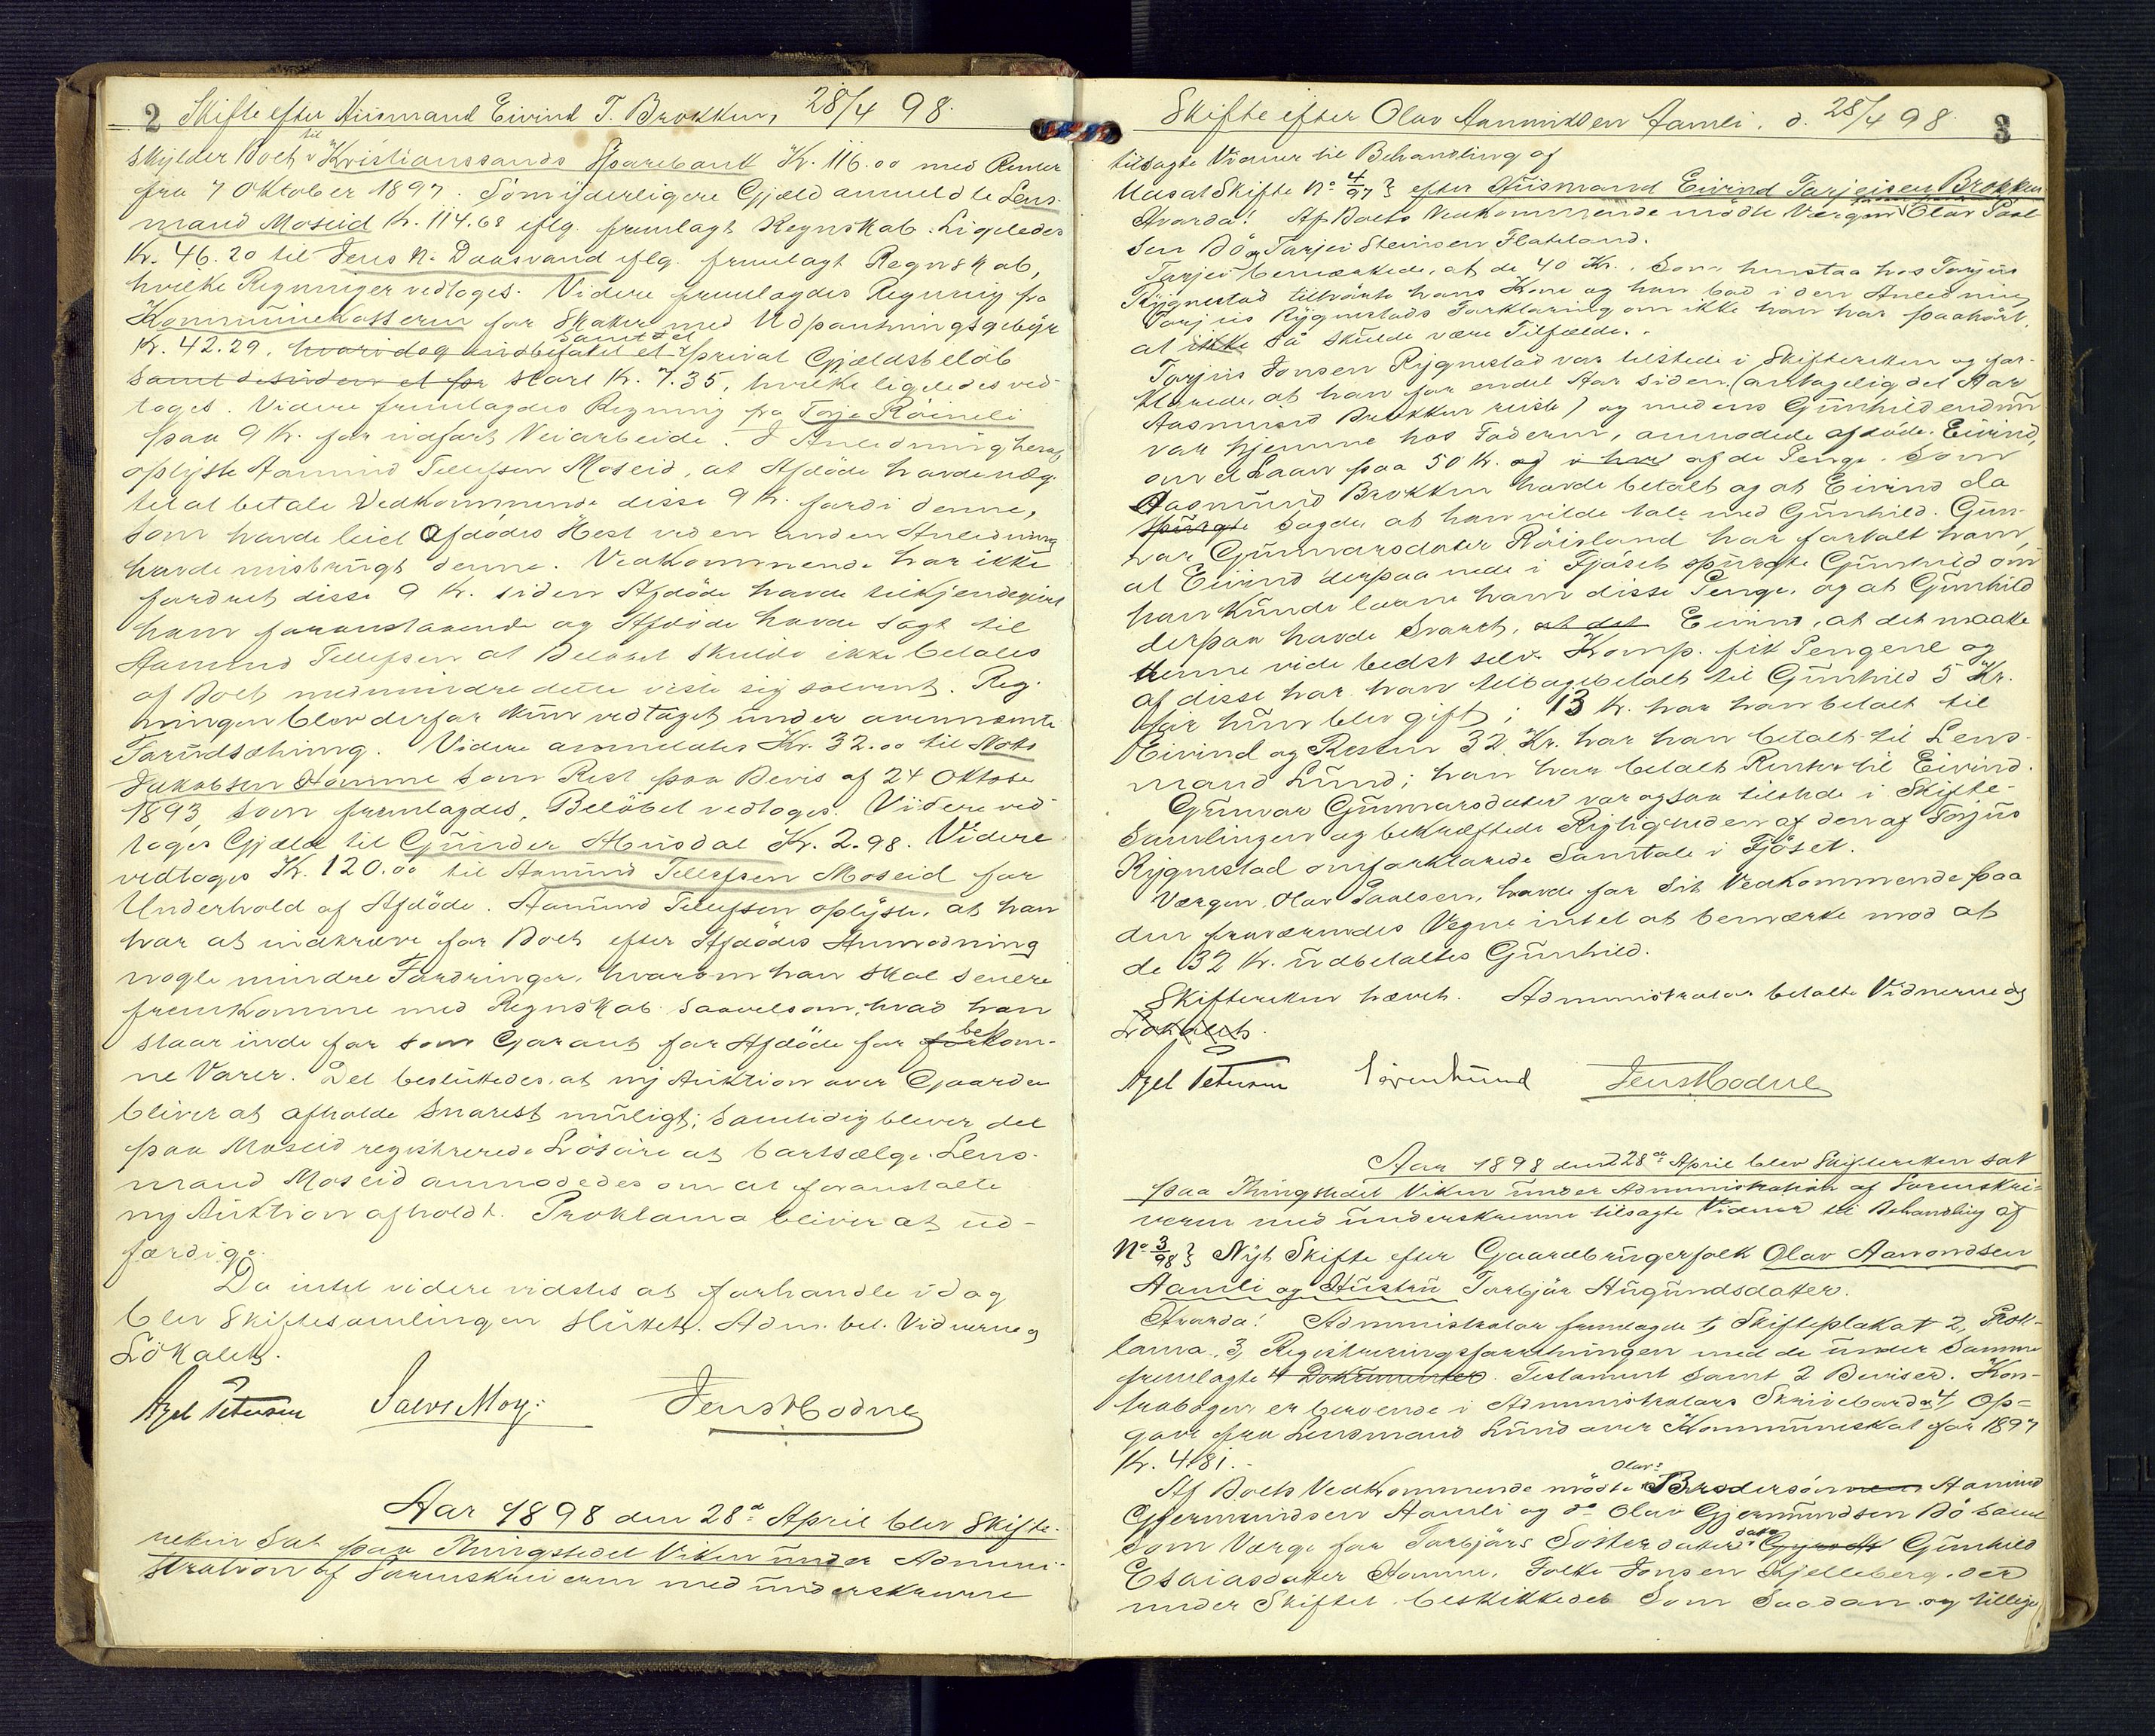 2 Skifte efter Husmand Eivind T. Brokken, 28/4 98.
skylder Boet til Kristianssands Sparebank Kr. 116.00 med Renter
fra 7 Oktober 1897. Som yderligere Gjæld anmeldte Lens-
mand Moseid Kr. 114.68 iflg. fremlagt Regnskab. Ligeledes
Kr. 46.20 til Jens N. Daasvand iflg. fremlagt Regnskab,
hvilke Regninger vedtoges. Videre fremlagdes Regning fra
Kommunekasseren for Skatter med Udpantningsgebyr
Kr. 42.29, samt et privat Gjældsbeløb
stort Kr. 7.35, hvilke ligeledes ved-
toges. Videre fremlagdes Regning fra Torje Röineli
paa 9 Kr. for udført Veiarbeide. I Anledning heraf
oplyste Aamund Tellefsen Moseid, at Afdöde havde næg-
tet at betale Vedkommende disse 9 Kr. fordi denne,
som havde leiet Afdödes Hest ved en anden Anledning
havde misbrugt denne. Vedkommende har ikke
fordret disse 9 Kr. siden Afdöde havde tilkjendegivet
ham foranstaaende og Afdöde havde sagt til
Aamund Tellefsen at Belöbet skulde ikke betales
af Boet medmindre dette viste sig solvent. Reg-
ningen blev derfor kun vedtaget under ovennævnte
Forudsætning. Videre anmeldtes Kr. 32.00 til
Jakobsen Homme som Rest paa Bevis af 24 Oktober
1893, som fremlagdes, Belöbet vedtoges. Videre ved-
toges Gjæld til Gunder Ausdal Kr. 2.98. Videre
vedtoges Kr. 120.00 til Aamund Tellefsen Moseid for
Underhold af Afdöde. Aamund Tellefsen oplyste, at han
har at indkræve for Boet efter Afdödes Anmodning
nogle mindre Fordringer, hvorom han skal senere
fremkomme med Regnskab saavelsom, hvad han
staar inde for som Garant for Afdöde for bekom-
ne Varer. Det besluttedes, at ny Auktion over Gaarden
bliver at afholde snarest muligt; samtidig bliver det
paa Moseid registrerede Lösöre at bortsælge. Lens-
mand Moseid anmodedes om at foranstalte
ny Auktion afholdt. Proklama bliver at ud-
færdige.
Da intet videre vidstes at forhandle idag
blev Skiftesamlingen sluttet. Adm. bet. Vidnerne og
Lokalet.
Axel Petersen Salve Moy. Jens Hodne
Aar 1898 den 28de April blev Skifte-
retten sat paa Thingstedet Viken under Admini-
stration af Sorenskriveren med underskrevne
Skifte efter Olav Aanundsen Aamli. d. 28/4 98. 3
tilsagte Vidner til Behandling af
Udsat Skifte No 4/97 efter Husmand Eivind Tarjeisen Brokken
Hvorda! Af Boets Vedkommende mödte Værgen Olav Paal-
sen Bö og Tarjei Steinsen Flateland.
Tarjei bemærkede, at de 40 Kr. som henstaa hos Torjus
Rygnestad tilhörte hans Kone og han bad i den Anledning
Torjus Rygnestads Forklaring om ikke han har paahört,
at så skulde være Tilfælde.
Torjus Jonsen Rygnestad var tilstede i Skifteretten og for-
klarede, at han for endel Aar siden (antagelig det Aar
Aasmund Brokken reiste) og medens Gunhild endnu
var hjemme hos Faderen, anmodede afdöde Eivind
om et Laan paa 50 Kr. af de Penge som
Aasmund Brokken havde betalt og at Eivind da
sagde, at han vilde tale med Gunhild. Gun-
vor Gunnarsdatter Röisland har fortalt ham,
at Eivind derpaa nede i Fjöset spurgte Gunhild om
han kunde laane ham disse Penge, og at Gunhild
derpaa havde svaret, Eivind, at det maatte
denne vide bedst selv. Komp. fik Pengene og
af disse har han tilbagebetalt til Gunhild 5 Kr.
för hun blev gift; 13 Kr. har han betalt til
Eivind og Resten 32 Kr. har han betalt til Lens-
mand Lund; han har betalt Renter til Eivind.
Gunvor Gunnarsdatter var ogsaa tilstede i Skifte-
samlingen og bekræftede Rigtigheden af den af Torjus
Rygnestad omforklarede Samtale i Fjöset.
Værgen, Olav Paalsen, havde for sit Vedkommende paa
den fraværendes Vegne intet at bemærke mod at
de 32 Kr. udbetaltes Gunhild.
Skifteretten hævet. Administrator betalte Vidnerne og
Lokalet.
Axel Petersen Jens Hodne
Aar 1898 den 28de April blev Skifteretten sat
paa Thingstedet Viken under Administration af Sorenskri-
veren med underskrevne tilsagte Vidner til Behandling af
No 3/98 Nyt Skifte efter Gaardbrugerfolk Olav Aanondsen
Aamli og Hustru Torbjör Augundsdatter.
Hvorda! Administrator fremlagde 1, Skifteplakat 2, Prok-
lama, 3, Registreringsforretningen med de under samme
fremlagte Dokumenter Testament samt 2 Beviser. Kon-
trabogen er beroende i Administrators Skrivebord og 4, Op-
gave fra Lensmand Lund over Kommuneskat for 1897
Kr. 4.81.
Af Boets Vedkommende mödte Olavs Brodersön Aanund
Gjermundsen Aamli og do Olav Gjermundsen Bö samt
som Værge for Torbjörs Sösterdatter Gunhild
Esaiasdatter Homme, Folke Jonsen Kjelleberg, der
under Skiftet beskikkedes som Saadan og tillige